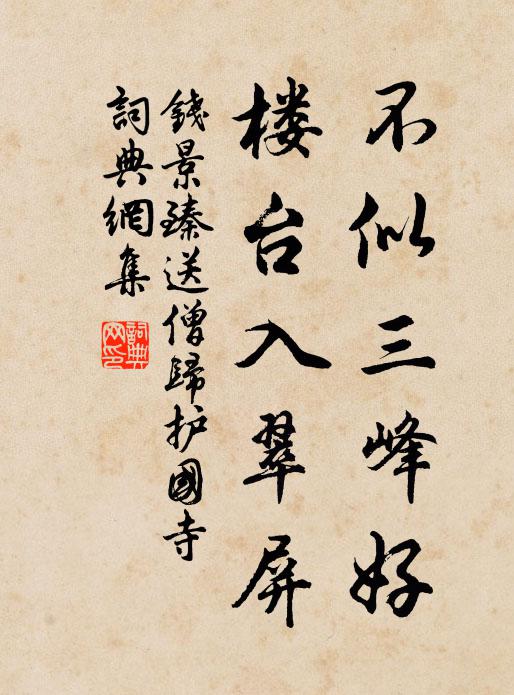 不似三峰好
楼台入翠屏
錢景臻送僧歸护國寺
詞典網集
詞典
网印